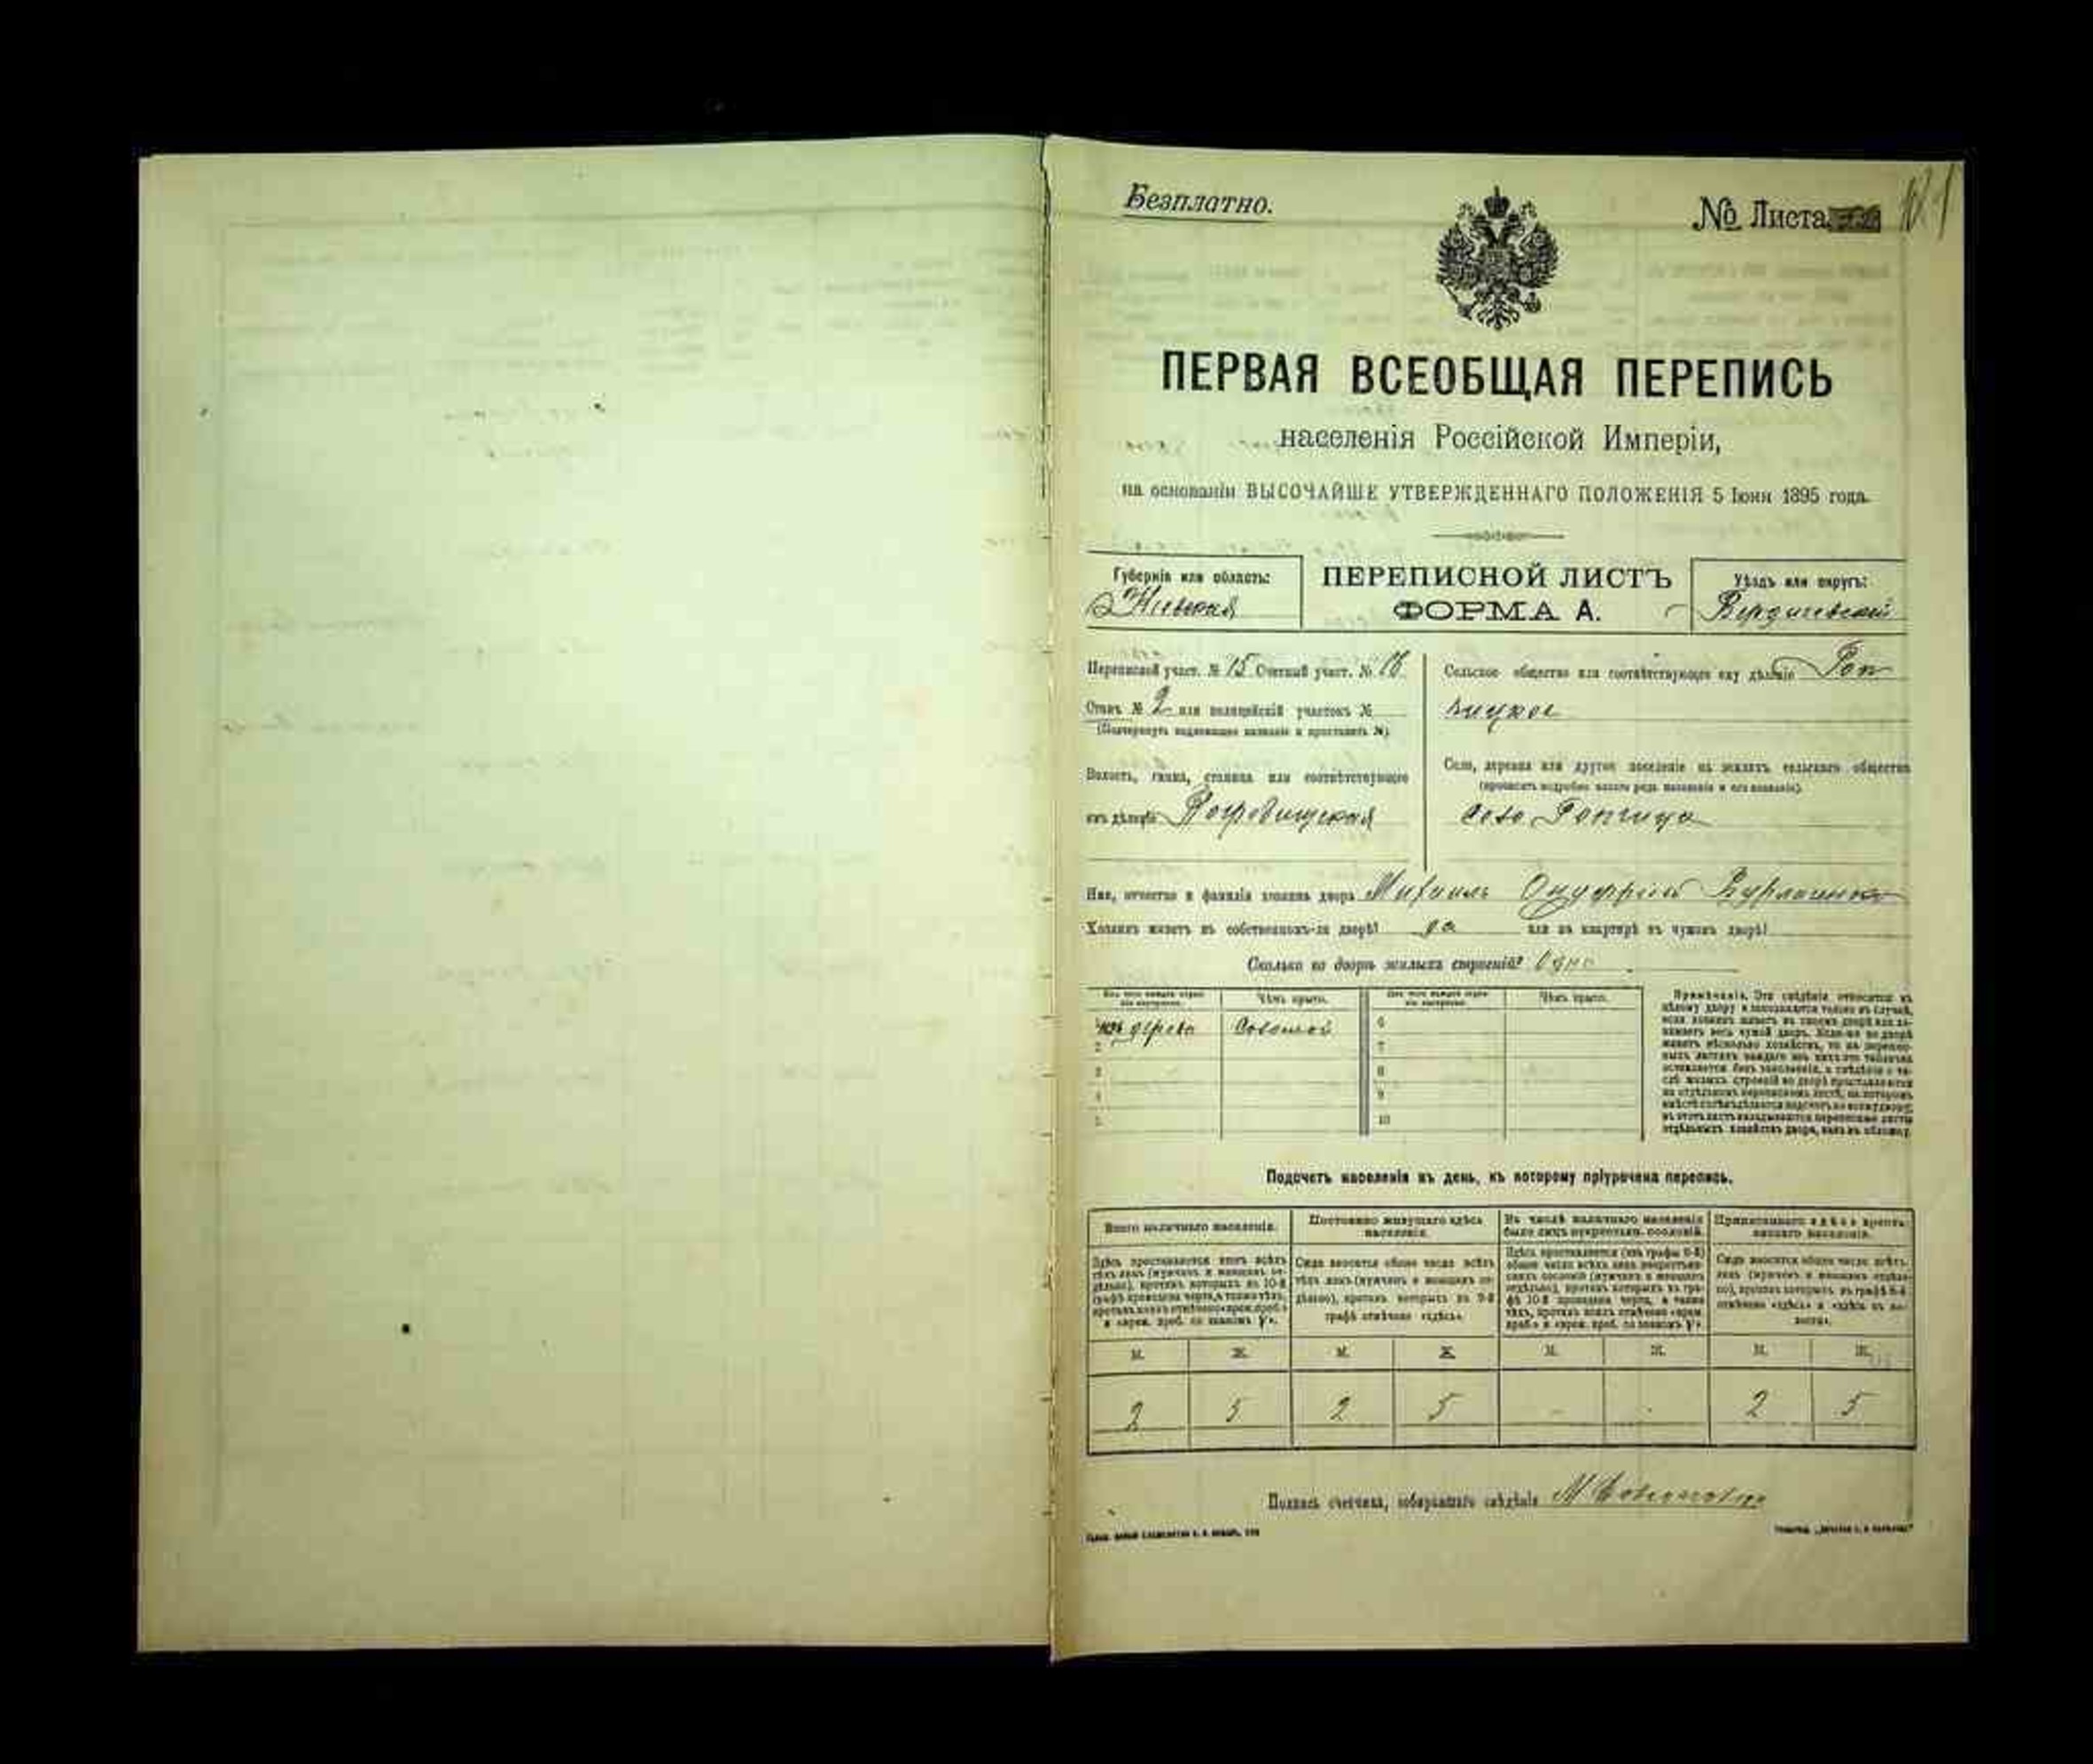 Безплатно.
№ Листа
ПЕРВАЯ ВСЕОБЩАЯ ПЕРЕПИСЬ
населенія Россійской Имперіи,
на основаніи ВЫСОЧАЙШЕ УТВЕРЖДЕННАГО ПОЛОЖЕНІЯ 5 Іюня 1895 года.
Губернія или область:
Кіевская
ПЕРЕПИСНОЙ ЛИСТЪ
ФОРМА А.
Уѣздъ или округъ:
Бердичевскій
Переписной участ. № 15 Счетный участ. №
Станъ № 2 или полицейскій участокъ №
(Подчеркнуть надлежащее названіе и проставить №)
Волость, гмина, станица или соотвѣтствующее
имъ дѣленіе Погребищская
Сельское общество или соотвѣтствующее ему дѣленіе Роп
чицкое
Село, деревня или другое поселеніе на земляхъ сельскаго общества
(прописать подробно какого рода поселеніе и его названіе).
село Ропчица
Имя, отчество и фамилія хозяина двора Михаилъ Онуфріевъ
Хозяинъ живетъ въ собственномъ-ли дворѣ? да или на квартирѣ въ чужомъ дворѣ?
Сколько во дворѣ жилыхъ строеній? Одно
Чѣмъ крыто.
Чѣмъ крыто.
изъ дерева Соломой
2
3
4
5
6
7
8
9
10
Примѣчаніе. Эти свѣдѣнія относятся къ
цѣлому двору и заполняются только въ случаѣ,
если хозяинъ живетъ въ своемъ дворѣ или за-
нимаетъ весь чужой дворъ. Если-же во дворѣ
живетъ нѣсколько хозяйствъ, то на перепис-
ныхъ листахъ каждаго изъ нихъ эта табличка
оставляется безъ заполненія, а свѣдѣнія о чи-
слѣ жилыхъ строеній во дворѣ проставляются
на отдѣльномъ переписномъ листѣ, на которомъ
отдѣльныхъ хозяйствъ двора, какъ въ обложку.
Подсчетъ населенія въ день, къ которому пріурочена перепись.
Всего наличнаго населенія.
Постоянно живущаго здѣсь
населенія.
Въ числѣ наличнаго населенія
было лицъ некрестьян. сословій.
Приписаннаго здѣсь кресть-
янскаго населенія.
Здѣсь проставляется итогъ всѣхъ
тѣхъ лицъ (мужчинъ и женщинъ от-
дѣльно), противъ которыхъ въ 10-й
графѣ проведена черта, а также тѣхъ,
противъ коихъ отмѣчено «врем. проб.»
Сюда вносится общее число всѣхъ
тѣхъ лицъ (мужчинъ и женщинъ от-
дѣльно), противъ которыхъ въ 9-й
графѣ отмѣчено «здѣсь».
Здѣсь проставляется (изъ графы 6-й)
общее число всѣхъ лицъ некрестьян-
скихъ сословій (мужчинъ и женщинъ
отдѣльно), противъ которыхъ въ гра-
фѣ 10-й проведена черта, а также
тѣхъ, противъ коихъ отмѣчено «врем.
Сюда вносится общее число всѣхъ
лицъ (мужчинъ и женщинъ отдѣль-
но), противъ которыхъ въ графѣ 8-й
отмѣчено «здѣсь» и «здѣсь въ во-
лости».
М. Ж. М. Ж. М. Ж. М. Ж.
2 5 2 5 - - 2 5
Подпись счетчика, собиравшаго свѣдѣнія